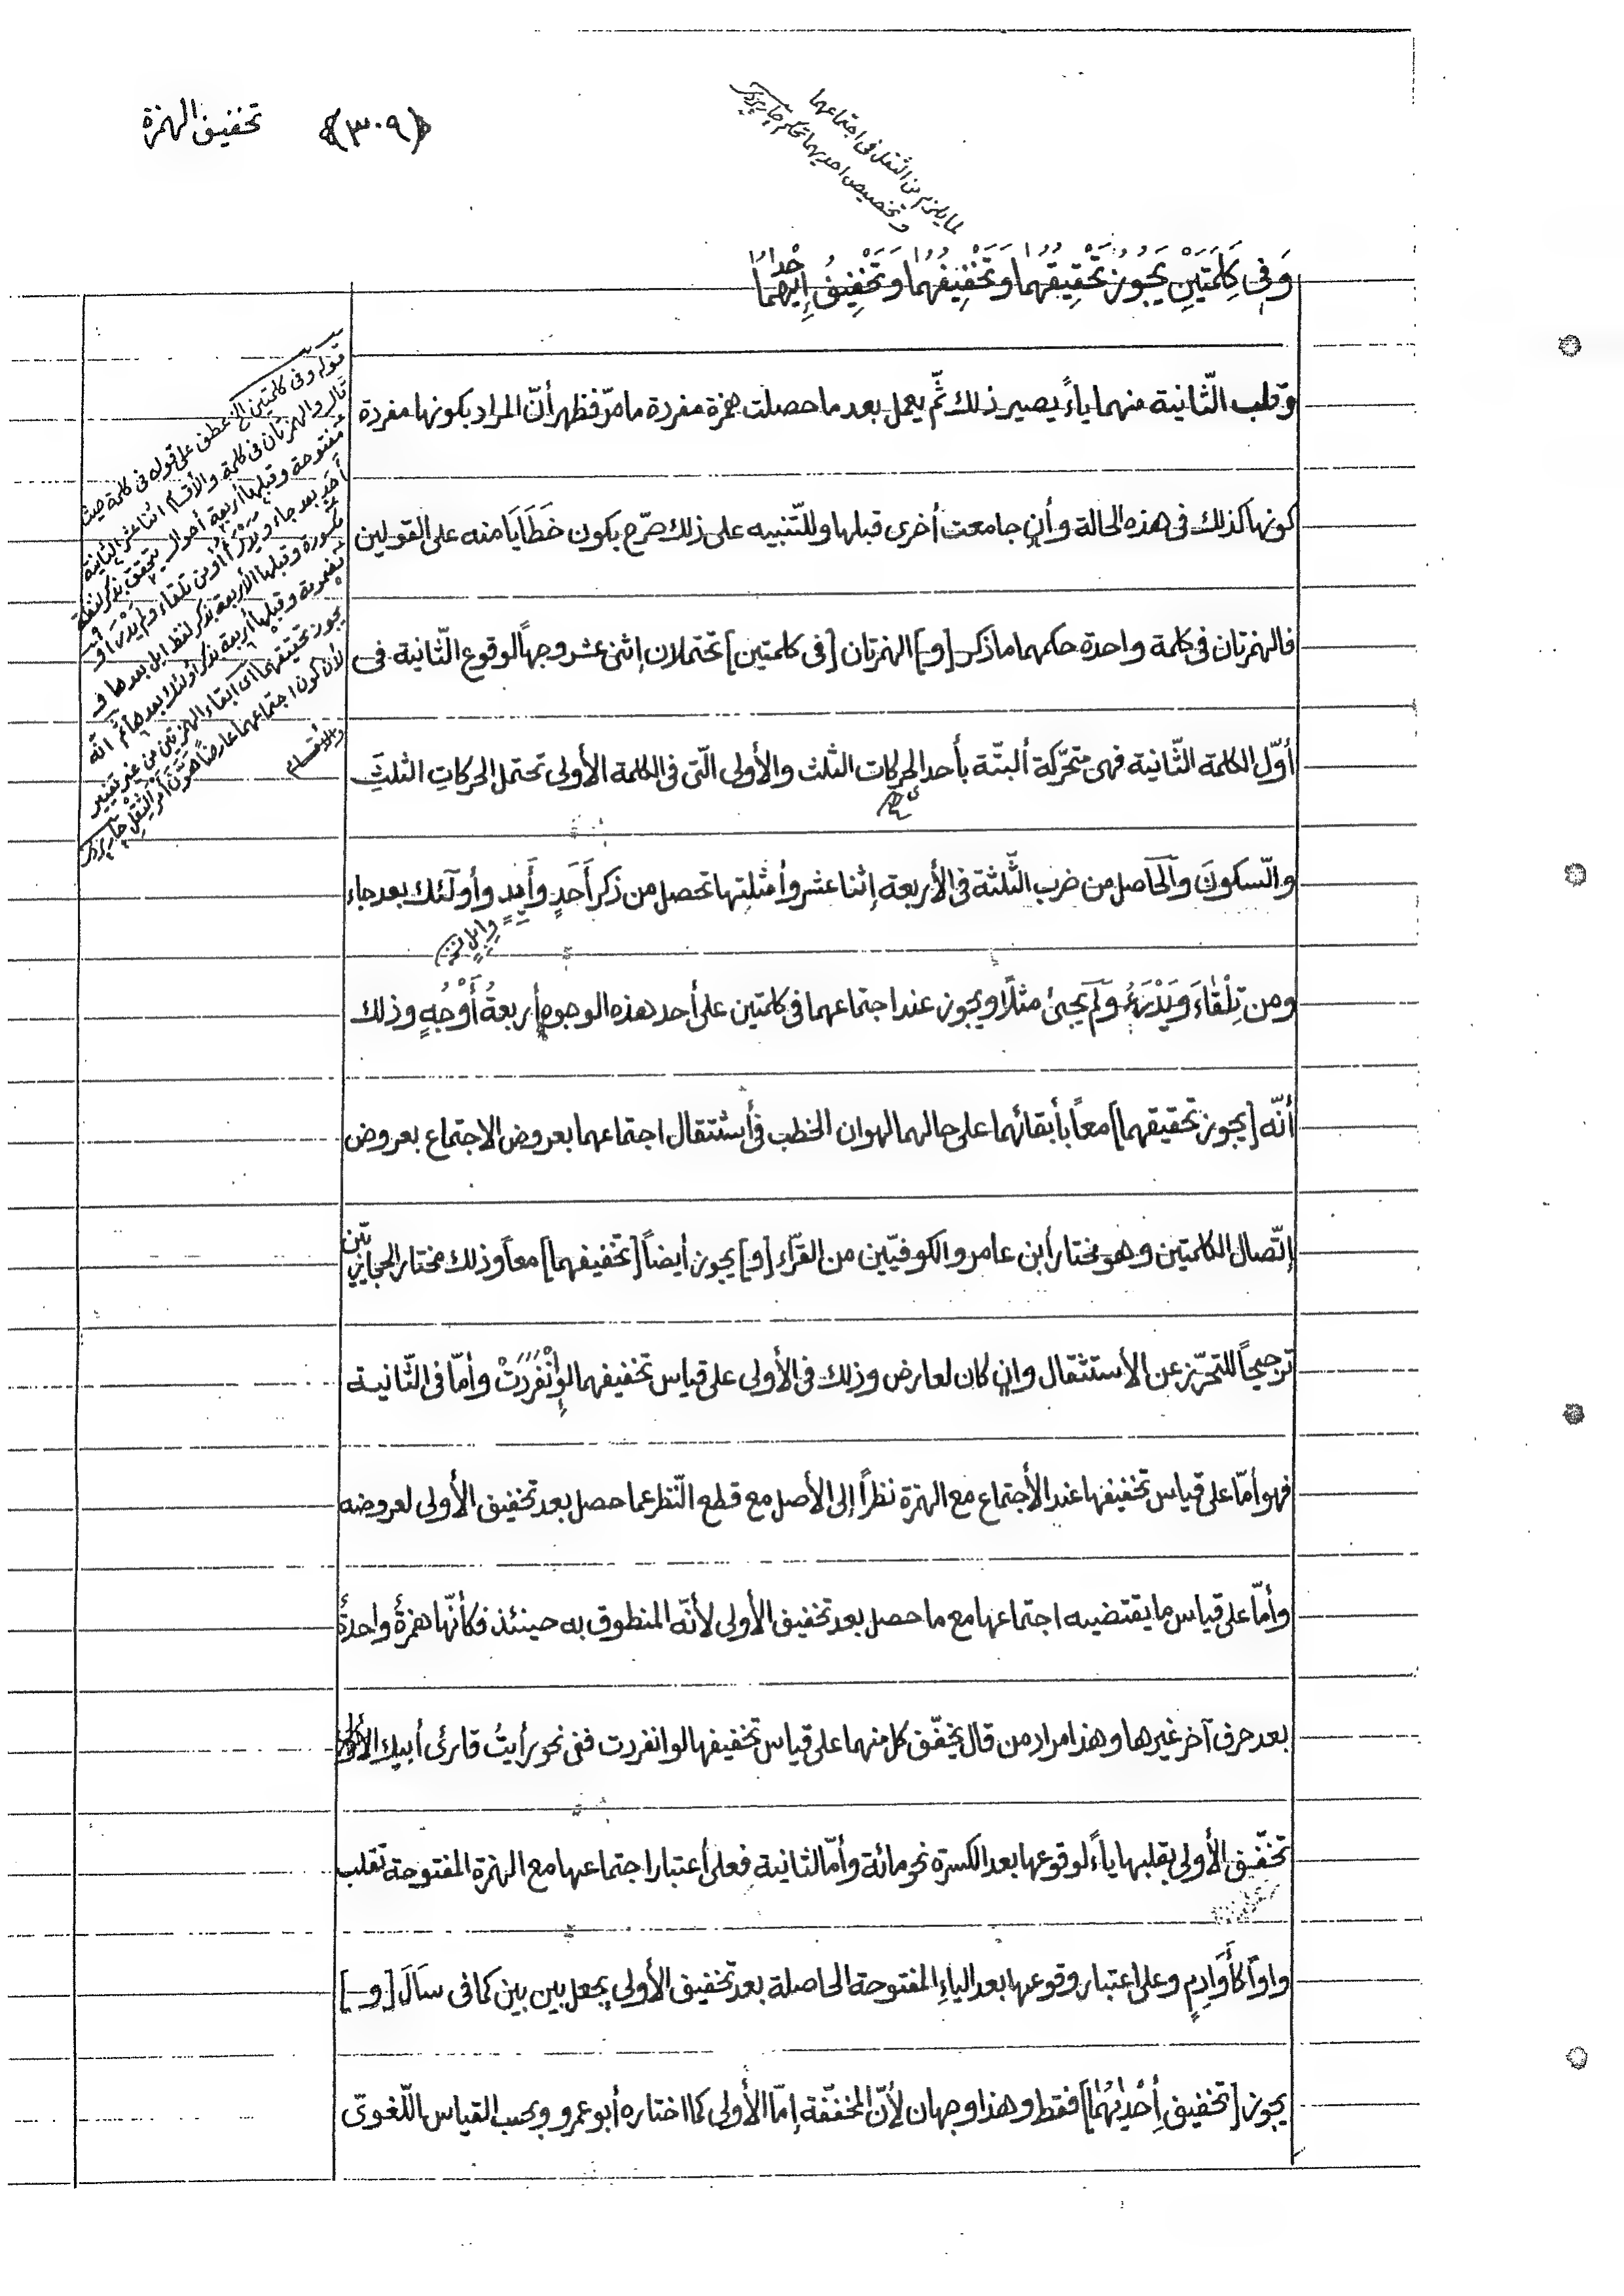 تخفيف الهمزة ﴿٣٠٩﴾
لما يلزم من الثقل فى اجتماعهما
وتخصيص احديهما تحكم جاربردى
وَفِى كَلِمَتَيْنِ يَجُوزُ تَحْقِيقُهُمَا وَتَخْفِيفُهُمَا وَتَخْفِيفُ إِحْدَاهُمَا
وقلب الثّانية منهما ياءً يصير ذلك ثمّ يعمل بعد ما حصلت همزة مفردة ما مرّ فظهر أنّ المراد بكونها مفردة
كونها كذلك فى هذه الحالة وأن جامعت أخرى قبلها وللتّنبيه على ذلك صرّح بكون خَطَايَا منه على القولين
فالهمزتان فى كلمة واحدة حكمهما ما ذكر [و] الهمزتان [فى كلمتين] تحتملان إثنى عشر وجهاً لوقوع الثّانية فى
أوّل الكلمة الثّانية فهى متحرّكة ألبتّة بأحد الحركات الثلث والأولى الّتى فى الكلمة الأولى تحتمل الحركاتِ الثلثَ
والسّكونَ والحاصل من ضرب الثّلثة فى الأربعة إثنا عشر وأمثلتها تحصل من ذكر أَحَدٍ وأَبِدٍ وأولٓئك بعد جاء
وإبلٍ نخ
ومن تِلْقَاءَ ويَدْرَءُ وَلَمْ يَجِئْ مثلًا ويجوز عند اجتماعهما فى كلمتين على أحد هذه الوجوه أربعةُ أَوْجُهٍ وذلك
أنّه [يجوز تحقيقهما] معاً بأبقائهما على حالهما لهوان الخطب فى أستثقال اجتماعهما بعروض الاجتماع بعروض
إتّصال الكلمتين وهو مختار أبن عامر والكوفيّين من القرّاء [و] يجوز أيضاً [تخفيفهما] معاً وذلك مختار الحجازيّين
ترجيحاً للتحرّز عن الأستثقال وان كان لعارض وذلك فى الأولى على قياس تخفيفهما لوإنْفَرَدَتْ وأمّا فى الثّانية
فهو أمّا على قياس تخفيفها عند الأجتماع مع الهمزة نظراً إلى الأصل مع قطع النّظر عما حصل بعد تخفيف الأولى لعروضه
وأمّا على قياس ما يقتضيه اجتماعها مع ما حصل بعد تخفيف الأولى لأنّه المنطوق به حينئذ فكأنّها همزةٌ واحدةٌ
بعد حرف آخر غيرها وهذا مراد من قال يخفّف كل منهما على قياس تخفيفها لو انفردت ففى نحو رأيتُ قارئى أبيك
تخفّف الأولى بقلبها ياءً لوقوعها بعد الكسرة نحو مائة وأمّا الثانية فعلى أعتبار اجتماعها مع الهمزة المفتوحة تقلب
واواً كأَوَادِمٍ وعلى اعتبار وقوعها بعد الياءِ المفتوحة الحاصلة بعد تخفيف الأولى يجعل بين بين كما فى سَاَلَ [و]
يجوز [تخفيف أِحْدَيٰهُمَا] فقط وهذا وجهان لأنّ المخفّفة إمّا الأولى كما اختاره أبو عمرو وبحسب القياس اللّغوىّ
قوله وفى كلمتين الخ عطف على قوله فى كلمة حيث
قال والهمزتان فى كلمة والأقسام اثنا عشر الثانية
مفتوحة وقبلها أربعة أحوال يتحقق بذكر لفظة
مكسورة وقبلها الأربعة بذكر لفظ ابل بعدها و
مضمومة وقبلها أربعة بذكر اولئك بعدها ثم انّه
يجوز تحقيقهما اى ابقاء الهمزتين من غير تغيير
لأن كون اجتماعهما عارضاً هوّن أمر الثقل جاربردى